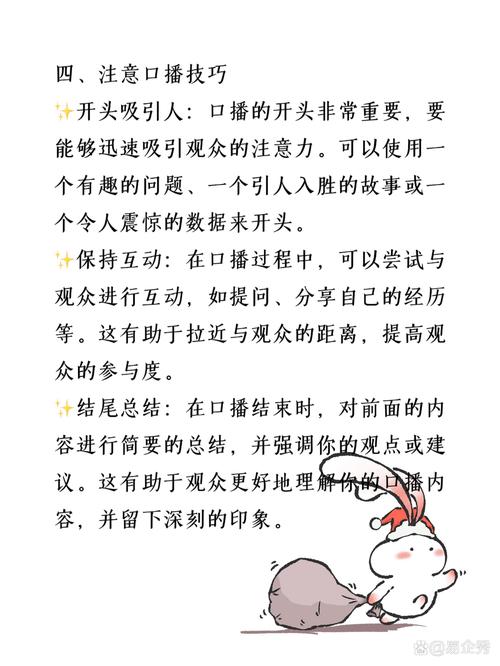 四、注意口播技巧
✨开头吸引人：口播的开头非常重要，要
能够迅速吸引观众的注意力。可以使用一
个有趣的问题、一个引人入胜的故事或一
个令人震惊的数据来开头。
✨保持互动：在口播过程中，可以尝试与
观众进行互动，如提问、分享自己的经历
等。这有助于拉近与观众的距离，提高观
众的参与度。
✨结尾总结：在口播结束时，对前面的内
容进行简要的总结，并强调你的观点或建
议。这有助于观众更好地理解你的口播内
容，并留下深刻的印象。
易企秀